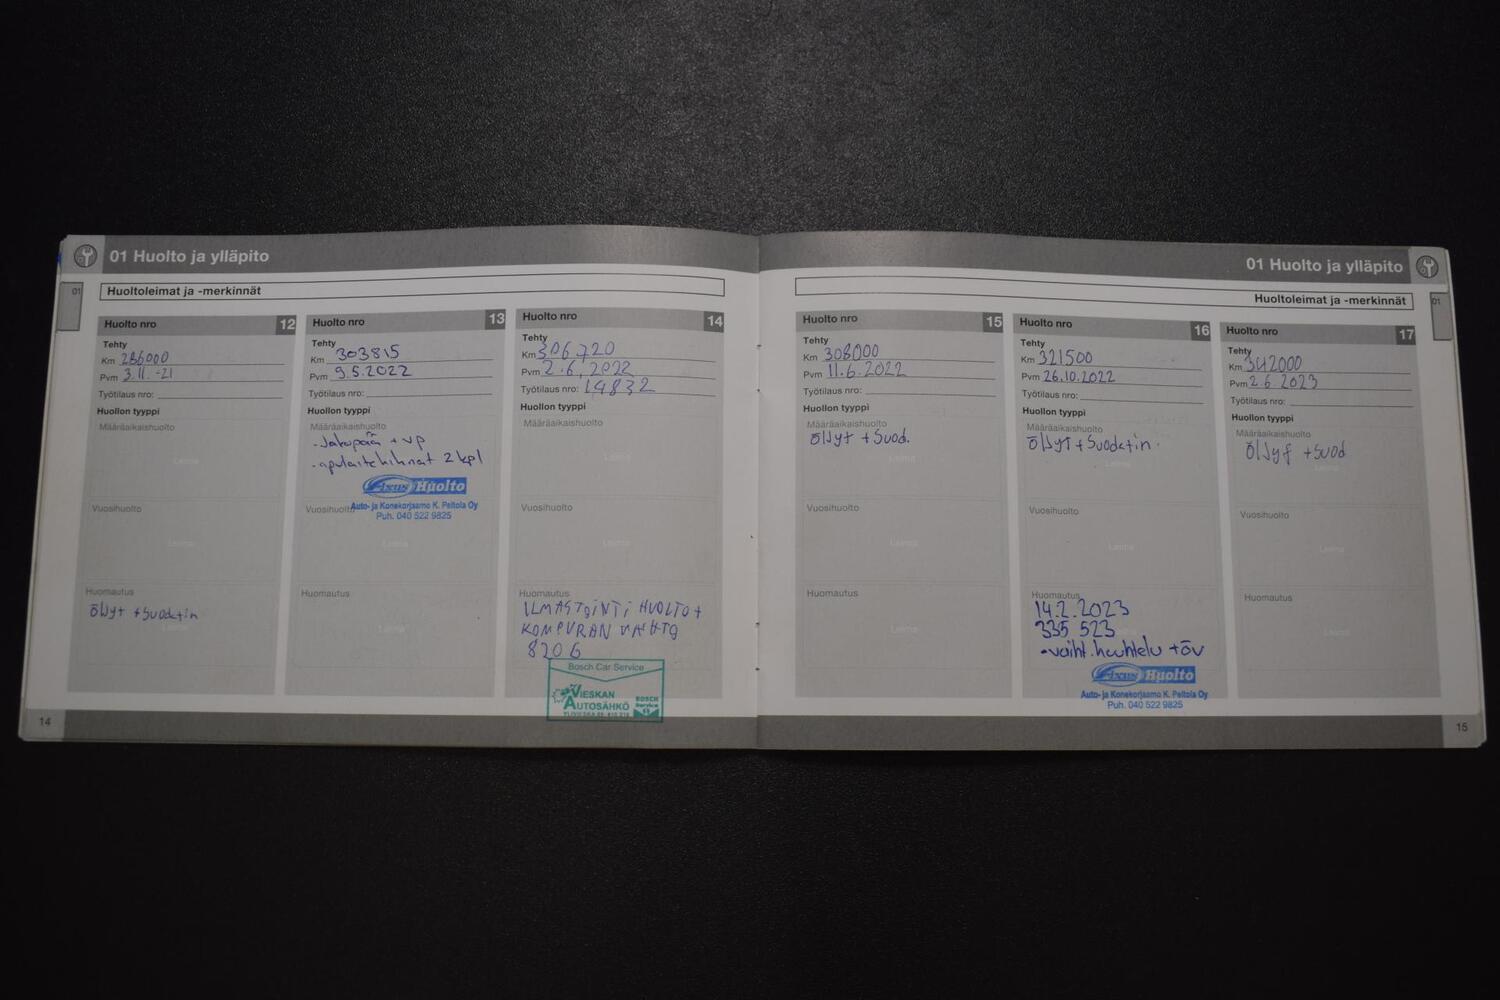 01 Huolto ja ylläpito
01
Huoltoleimat ja -merkinnät
Huolto nro 12
Tehty
Km 286000
Pvm 3.11.-21
Työtilaus nro:
Huollon tyyppi
Määräaikaishuolto
Leima
Vuosihuolto
Leima
Huomautus
öljyt + suodatin
Leima
Huolto nro 13
Tehty
Km 303815
Pvm 9.5.2022
Työtilaus nro:
Huollon tyyppi
Määräaikaishuolto
- Jakopää + vp
- apulaitehihnat 2 kpl
Axus Huolto
Auto- ja Konekorjaamo K. Peltola Oy
Puh. 040 522 9825
Vuosihuolto
Leima
Huomautus
Huolto nro 14
Tehty
Km 306720
Pvm 2.6.2022
Työtilaus nro: 14832
Huollon tyyppi
Määräaikaishuolto
Leima
Vuosihuolto
Leima
Huomautus
ILMASTOINTI HUOLTO +
KOMPURAN VAIHTO
820 G
Bosch Car Service
VIESKAN
AUTOSÄHKÖ
BOSCH
Service
14
01 Huolto ja ylläpito
01
Huoltoleimat ja -merkinnät
Huolto nro 15
Tehty
Km 308000
Pvm 11.6.2022
Työtilaus nro:
Huollon tyyppi
Määräaikaishuolto
öljyt + suod.
Leima
Vuosihuolto
Leima
Huomautus
Leima
Huolto nro 16
Tehty
Km 321500
Pvm 26.10.2022
Työtilaus nro:
Huollon tyyppi
Määräaikaishuolto
öljyt + suodatin.
Leima
Vuosihuolto
Leima
Huomautus
14.2.2023
335 523
- vaiht. huuhtelu + öv
Axus Huolto
Auto- ja Konekorjaamo K. Peltola Oy
Puh. 040 522 9825
Huolto nro 17
Tehty
Km 342000
Pvm 2.6.2023
Työtilaus nro:
Huollon tyyppi
Määräaikaishuolto
öljyt + suod
Leima
Vuosihuolto
Leima
Huomautus
Leima
15